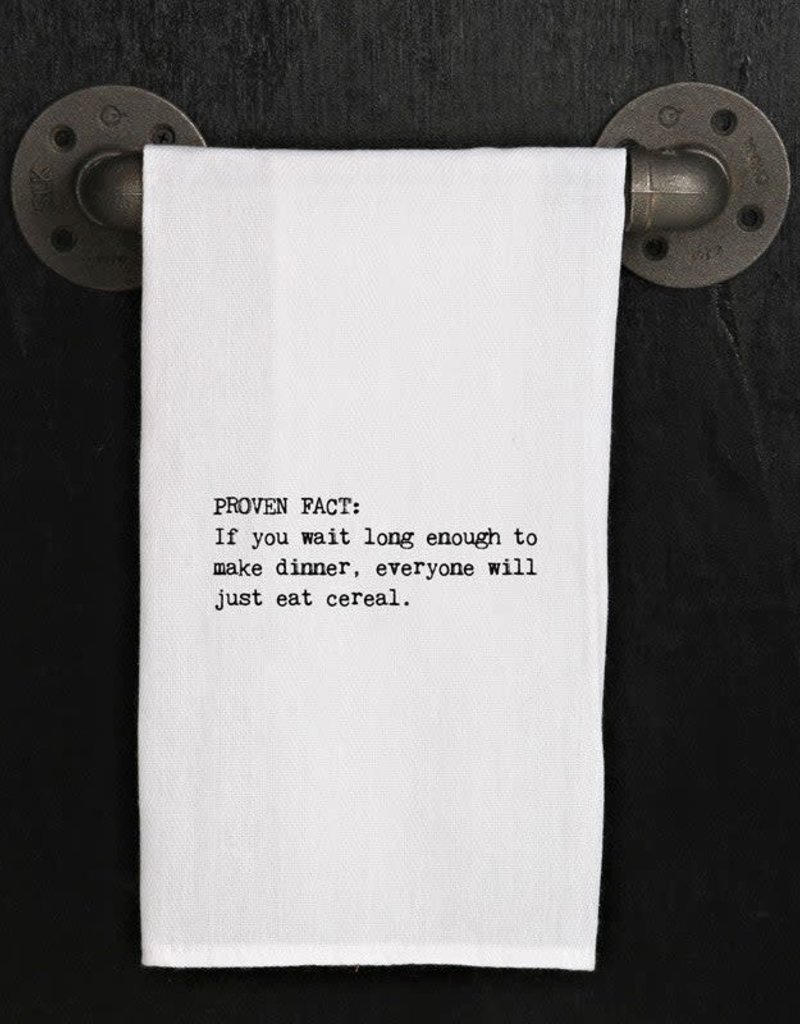 PROVEN FACT:
If you wait long enough to
make dinner, everyone will
just eat cereal.